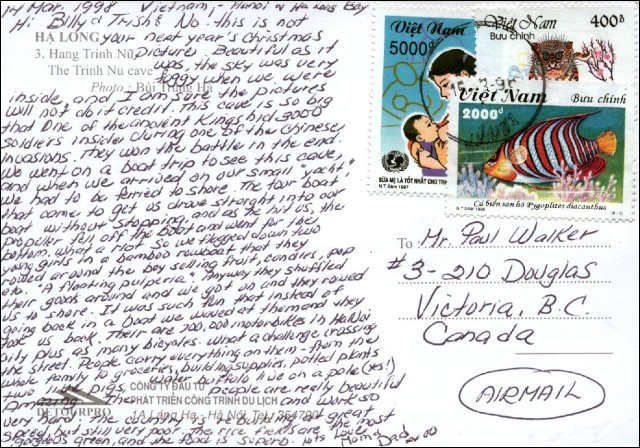 14 Mar. 1998 Vietnam, Hanoi & Ha Long Bay
Hi Billy & Trish & No. this is not
your next year's Christmas
picture. Beautiful as it
was, the sky was very
foggy when we were
inside, and I am sure the pictures
will not do it credit. This cave is so big
that one of the ancient Kings hid 3000
soldiers inside during one of the Chinese
invasions. They won the battle in the end.
We went on a boat trip to see this cave,
and when we arrived on our small "yacht",
we had to be ferried to shore. The tour boat
that came to get us drove straight into our
boat without stopping, and as he hit us, the
propiller fell off the boat and went for the
bottom. What a riot. So we flagged down two
young girls in a bamboo rowboat that they
rowed around the bay selling fruit, candies, pop
etc. "A floating pulperia". Anyway they shuffled
their goods around and we got on and they rowed
us to shore. It was such fun that instead of
going back in a boat we waved at them and they
took us back. Their are 700,000 motorbikes in Ha Noi
city plus as many bicycles. What a challenge crossing
the street. People carry everything on them - from the
whole family to groceries, building supplies, potted plants
two live pigs, water buffalo live on a pole (yes!)
The people are really beautiful
and work so
very hard. The country is rebuilding at great
speed, but still very poor. The rice fields are
gorgeous green, and the food is superb. lots Love
Mom & Dad xoxoo
HẠ LONG
3. Hang Trinh Nữ
The Trinh Nu cave
Photo: Bùi Trung Hà
CÔNG TY ĐẦU TƯ
PHÁT TRIỂN CÔNG TRÌNH DU LỊCH
1A Láng Hạ - Hà Nội, Tel:
DETOURPRO
Việt Nam
5000đ
SỮA MẸ LÀ TỐT NHẤT CHO TRẺ
N.T. Sâm 1997
Việt Nam
400đ
Bưu chính
Việt Nam
Bưu chính
2000đ
Cá biển san hô Pygoplites diacanthus
N.T. Sâm 1995
To Mr. Paul Walker
#3-210 Douglas
Victoria, B.C.
Canada
AIRMAIL